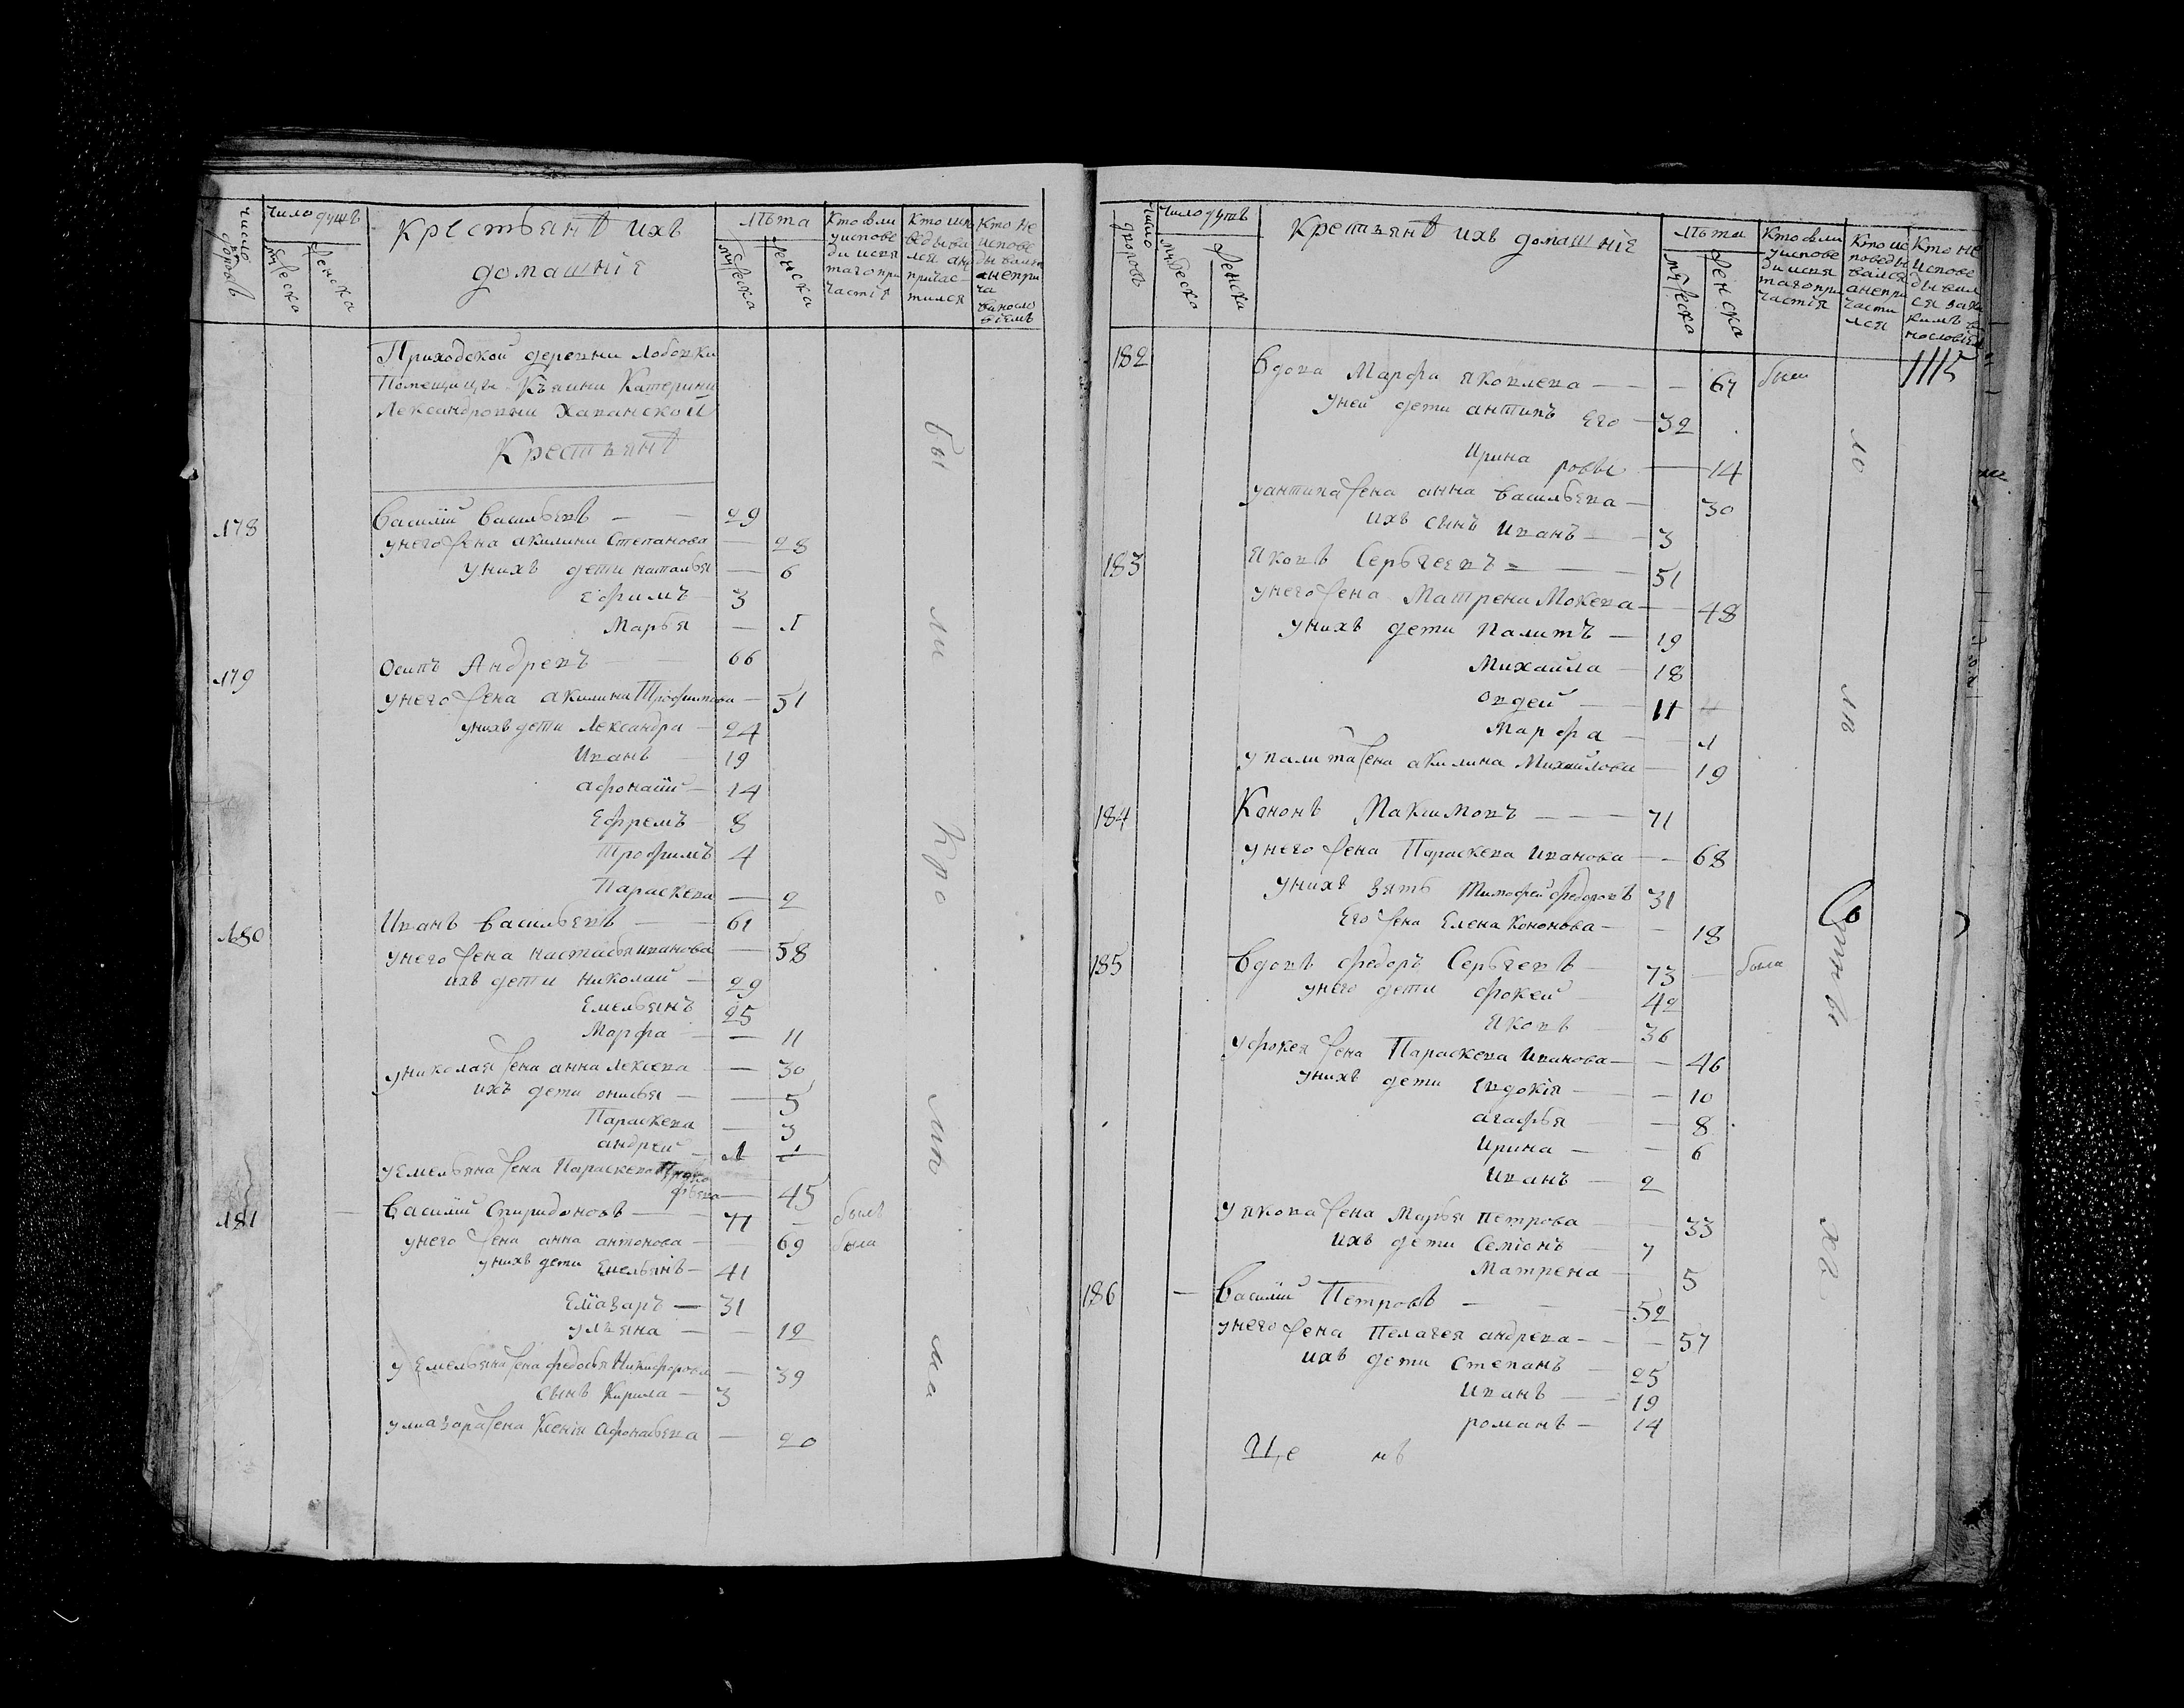 число дворовъ
число душъ
мужеска
женска
Крестьянѣ ихъ
домашнiе
Лѣта
мужеска
женска
Кто были
у испове
ди и свя
таго при
частiя
Кто испо
ведыва
лся а не
причас-
тился
Кто не
испове
дывался
Приходской деревни Лобовки
Помещицы Княини Катерины
Лександровны Хаванской
Крестьянѣ
178
Василiй Васильевъ — — 29
у него жена акилина Степанова — 28
у нихъ дети наталья — 6
Ефимъ 3
Марья — 1
179
Осипъ Андревъ — 66
у него жена акилина Трофимова — 51
у нихъ дети Лександра — 24
Иванъ 19
Афонасiй — 14
Ефремъ 8
Трофимъ 4
Параскева — 2
180
Иванъ Васильевъ — 61
у него жена настасья иванова — 58
ихъ дети николай — 29
Емельянъ 25
Марфа — 11
у николая жена анна Лексеева — 30
ихъ дети — 5
Параскева — 3
андрей — 1
у Емельяна жена Параскева Проко
фьева — 45
181
Василiй Спиридоновъ — 71 — былъ
у него жена анна антонова — 69 была
у нихъ дети Емельянъ — 41
Елiазаръ — 31
ульяна — 12
у Емельяна жена федосья Никифорова — 39
сынъ Кирила — 3
у лиазара жена Ксенiя Афонасьева — 20
бы ли кро ма
число дворовъ
число душъ
мужеска
женска
Крестьянѣ ихъ домашнiе
Лѣта
мужеска
женска
Кто были
у испове
ди и свя
таго при
частiя
Кто ис
поведы
вался
а не при
части
лся
Кто не
испове
дывал
ся
1115
182
Вдова Марфа яковлева — — — 67 была
у ней дети антипъ Его — 32
Ирина ровы — 14
у антипа жена анна васильева — 30
ихъ сынъ иванъ — 3
183
Яковъ Сергеевъ — 51
у него жена Матрена Мокева — 48
у нихъ дети Палитъ — 19
Михайла — 18
Овдей — 11
Марфа — 1
у палита жена акилина Михайлова — 19
184
Кононъ Максимовъ — — — 71
у него жена Параскева иванова — — 68
у нихъ зять Тимофей федоровъ 31
Его жена Елена Кононова — — 18
185
Вдовъ федоръ Сергеевъ — 73 — была
у него дети фокей 42
Яковъ 36
у фокея жена Параскева иванова — — 46
у нихъ дети Евдокiя — 10
агафья — 8
Ирина — 6
иванъ — 2
у якова жена Марья Петрова — 33
ихъ дети Семiонъ — 7
Матрена — 5
186
Василiй Петровъ — — 52
у него жена Пелагея андрева — — 57
ихъ дети Степанъ — 25
Иванъ — 19
романъ — 14